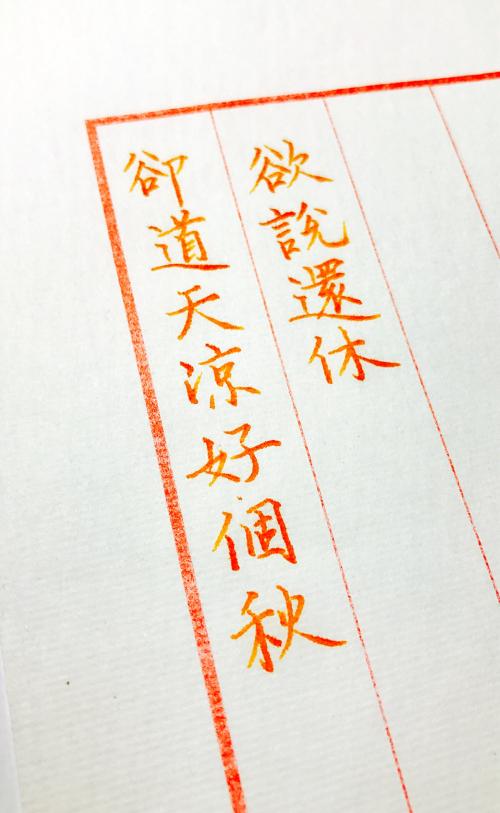 欲說還休
卻道天涼好個秋